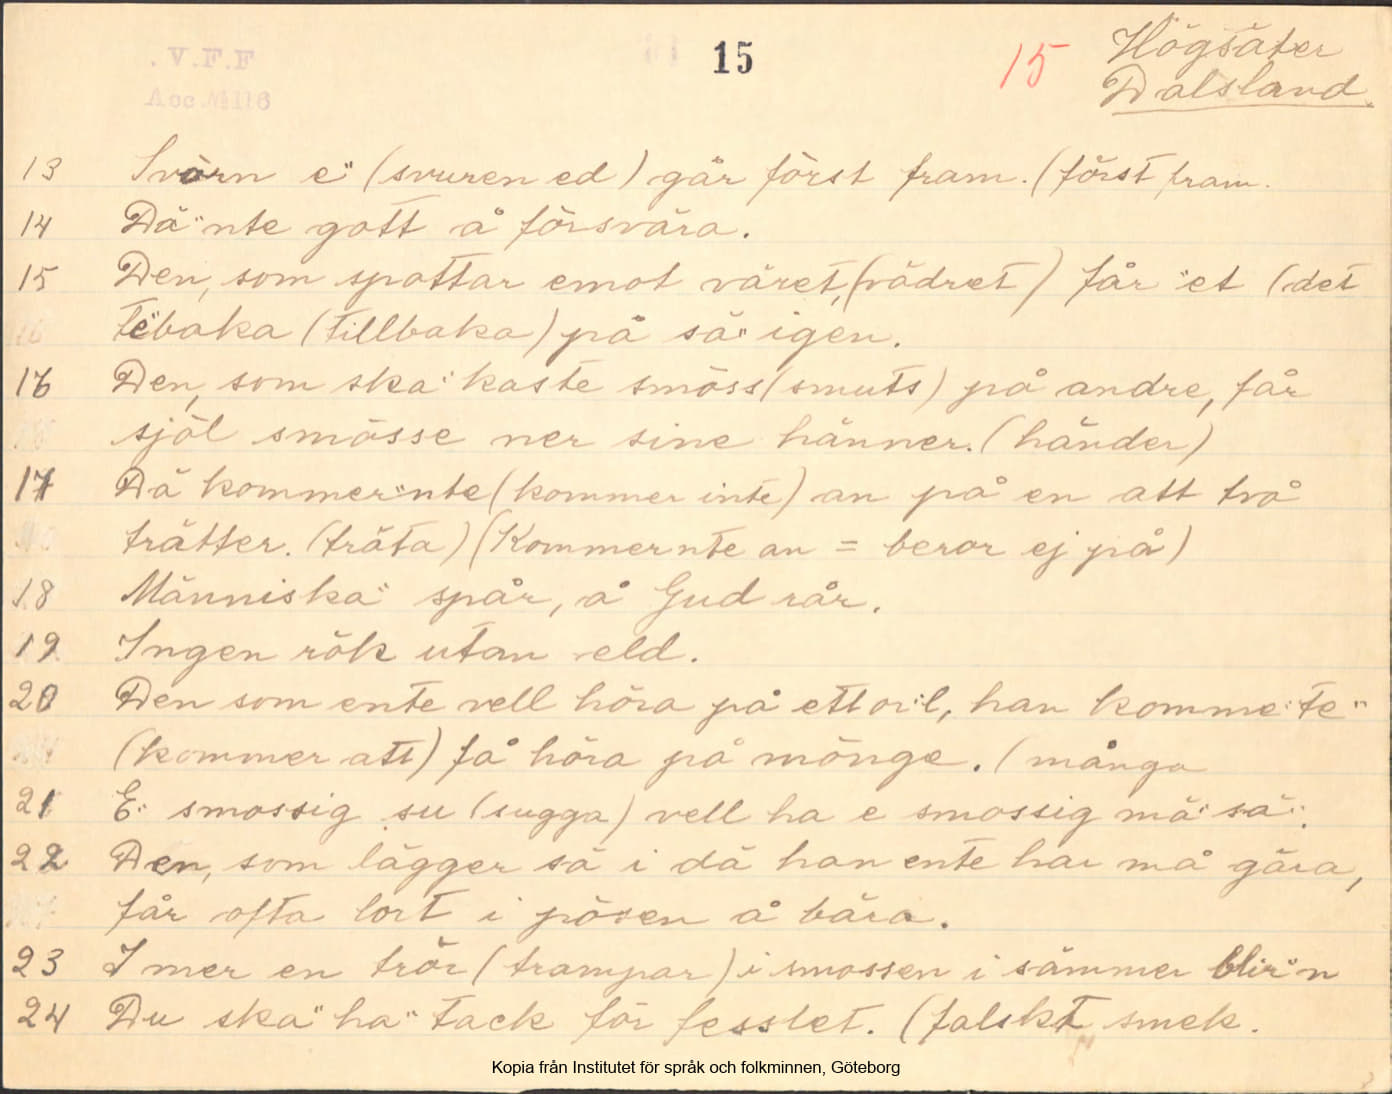 . V.F.F
Acc.№ 116
15
15
Högsäter
Dalsland.
13 Svörn e" (svuren ed) går först fram. (först fram.
14 Dä"nte gott å försvära.
15 Den, som spottar emot väret, (vädret) får "et (det
te"baka (tillbaka) på sä" igen.
16 Den, som ska" kaste smöss (smuts) på andre, får
sjöl smösse ner sine hänner. (händer)
17 Dä kommer"nte (kommer inte) an på en att två
trätter. (träta) (Kommernte an = beror ej på)
18 Människa" spår, å Gud rår.
19 Ingen rök utan eld.
20 Den som ente vell höra på ett or"l, han komme" te"
(kommer att) få höra på mönge. (många
21 E" smossig su (sugga) vell ha e smossig mä" sä".
22 Den, som lägger sä i dä han ente har må gära,
får ofta lort i pösen å bära.
23 I mer en trör (trampar) i smossen i sämmer blir"n
24 Du ska" ha" tack för fesslet. (falskt smek.
Kopia från Institutet för språk och folkminnen, Göteborg